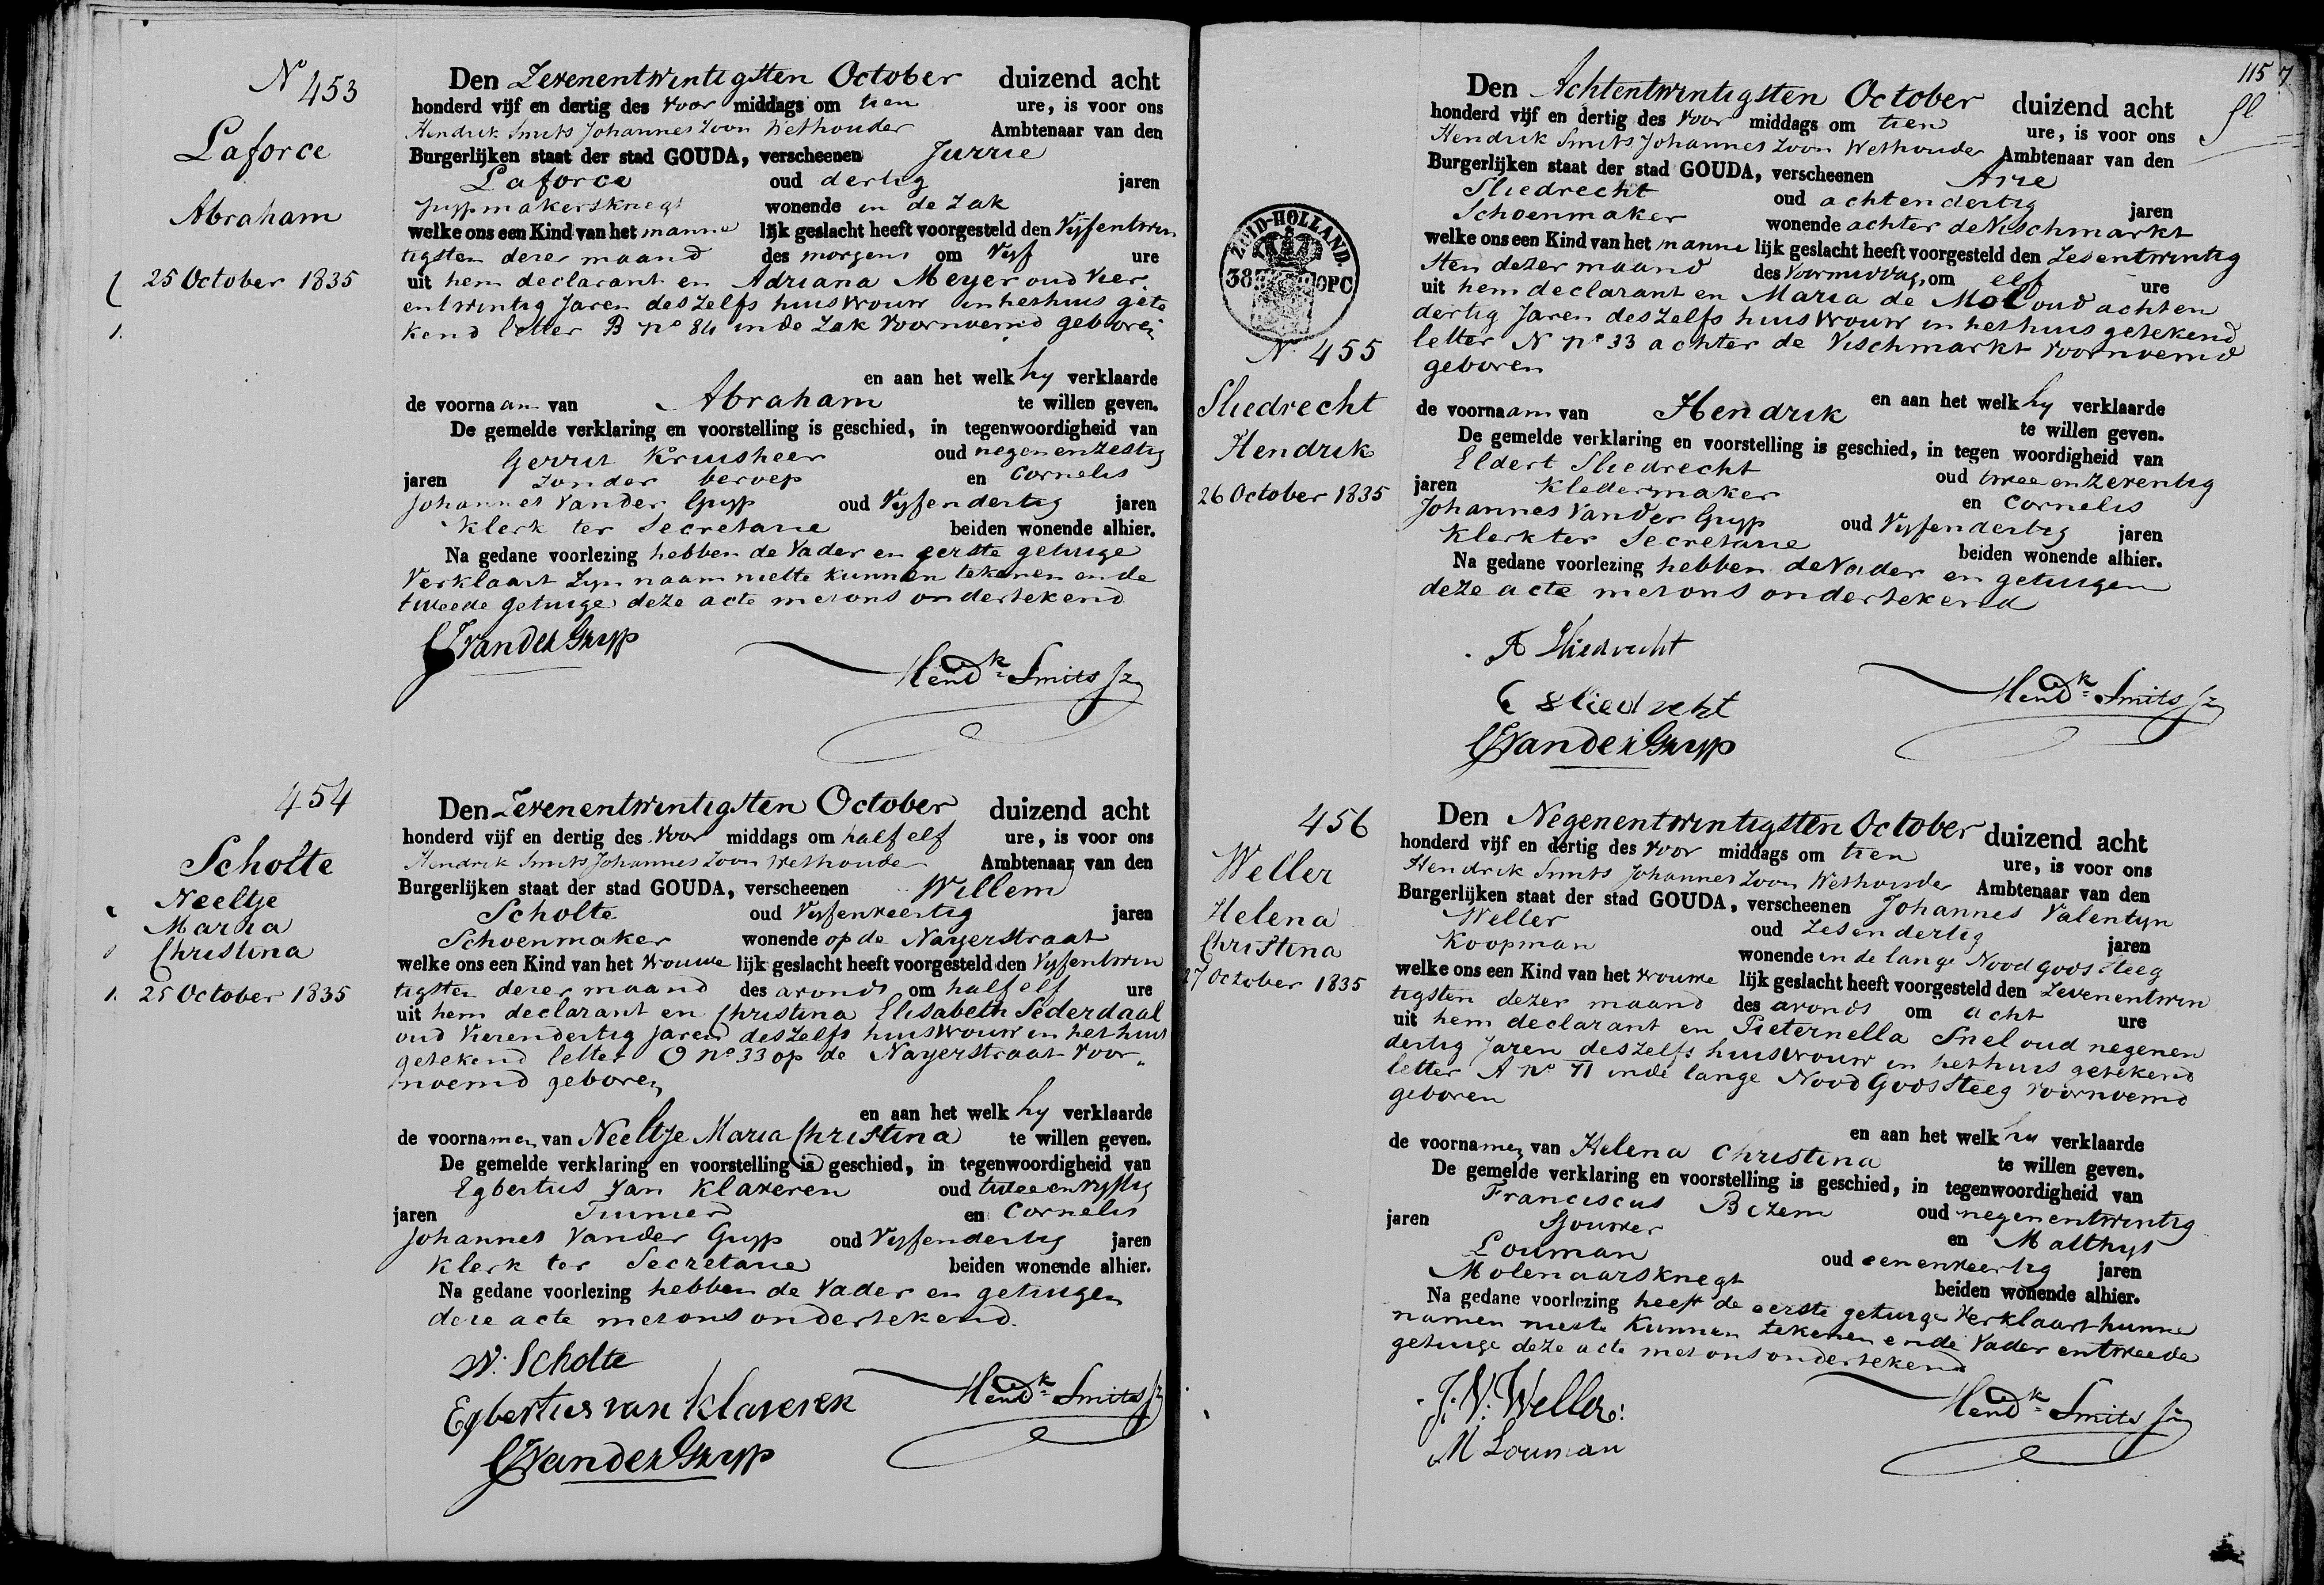 Nº 453
Laforce
Abraham
25 October 1835
1.
Den Zevenentwintigsten October duizend acht
honderd vijf en dertig des voor middags om tien ure, is voor ons
Hendrik Smits Johannes Zoon Wethouder Ambtenaar van den
Burgerlijken staat der stad GOUDA, verscheenen Jurrie
Laforce oud dertig jaren
pypmakersknegt wonende in de Zak
welke ons een Kind van het manne lijk geslacht heeft voorgesteld den Vyfentwin
tigsten dezer maand des morgens om Vyf ure
uit hem declarant en Adriana Meyer oud Vier
entwintig Jaren deszelfs huisvrouw in het huis gete
kend letter B nº 84 in de Zak voornoemd geboren
en aan het welk hy verklaarde
de voornaam van Abraham te willen geven.
De gemelde verklaring en voorstelling is geschied, in tegenwoordigheid van
Gerrit Kruisheer oud negenenzestig
jaren zonder beroep en Cornelis
Johannes Vander Gryp oud Vyfendertig jaren
Klerk ter Secretarie beiden wonende alhier.
Na gedane voorlezing hebben de Vader en eerste getuige
Verklaart Zyn naam niette kunnen tekenen en de
tweede getuige deze acte met ons ondertekend
CJVander Gryp
Hendk Smits Jz
454
Scholte
Neeltje
Maria
Christina
1. 25 October 1835
Den Zevenentwintigsten October duizend acht
honderd vijf en dertig des voor middags om half elf ure, is voor ons
Hendrik Smits Johannes Zoon Wethouder Ambtenaar van den
Burgerlijken staat der stad GOUDA, verscheenen Willem
Scholte oud Vyfenveertig jaren
Schoenmaker wonende op de Nayerstraat
welke ons een Kind van het vrouwe lijk geslacht heeft voorgesteld den Vyfentwin
tigsten dezer maand des avonds om half elf ure
uit hem declarant en Christina Elisabeth Sederdaal
oud Vierendertig jaren deszelfs huisvrouw in het huis
getekend letter O nº 33 op de Nayerstraat voor
noemd geboren
en aan het welk hy verklaarde
de voornamen van Neeltje Maria Christina te willen geven.
De gemelde verklaring en voorstelling is geschied, in tegenwoordigheid van
Egbertus Van Klaveren oud tweeenvyftig
jaren en Cornelis
Johannes Vander Gryp oud Vyfendertig jaren
Klerk ter Secretarie beiden wonende alhier.
Na gedane voorlezing hebben de Vader en getuigen
deze acte met ons ondertekend.
W. Scholte
Egbertus van Klaveren
Hendk Smits Jz
CJVander Gryp
115
ZUID-HOLLAND.
38 OPC
Nº 455
Sliedrecht
Hendrik
26 October 1835
Den Achtentwintigsten October duizend acht
honderd vijf en dertig des voor middags om tien ure, is voor ons
Hendrik Smits Johannes Zoon Wethouder Ambtenaar van den
Burgerlijken staat der stad GOUDA, verscheenen Arie
Sliedrecht oud achtendertig jaren
Schoenmaker wonende achter de Vischmarkt
welke ons een Kind van het manne lijk geslacht heeft voorgesteld den Zesentwintig
sten dezer maand des Voormiddag om elf ure
uit hem declarant en Maria de Mol oud achten
dertig Jaren deszelfs huisvrouw in het huis getekend
letter N nº 33 achter de Vischmarkt voornoemd
geboren
en aan het welk hy verklaarde
de voornaam van Hendrik te willen geven.
De gemelde verklaring en voorstelling is geschied, in tegen woordigheid van
Eldert Sliedrecht oud tweeenzeventig
jaren Kledermaker en Cornelis
Johannes Vander Gryp oud Vyfendertig jaren
Klerk ter Secretarie beiden wonende alhier.
Na gedane voorlezing hebben de Vader en getuigen
deze acte met ons ondertekend
A Sliedrecht
E sliedrecht
Hendk Smits Jz
CJVander Gryp
456
Weller
Helena
Christina
27 October 1835
Den Negenentwintigsten October duizend acht
honderd vijf en dertig des voor middags om tien ure, is voor ons
Hendrik Smits Johannes Zoon Wethouder Ambtenaar van den
Burgerlijken staat der stad GOUDA, verscheenen Johannes Valentyn
Weller oud Zesendertig jaren
Koopman wonende in de lange Nood Goos Steeg
welke ons een Kind van het vrouwe lijk geslacht heeft voorgesteld den Zevenentwin
tigsten dezer maand des avonds om acht ure
uit hem declarant en Pieternella Snel oud negenen
dertig Jaren deszelfs huisvrouw in het huis getekend
letter A nº 71 in de lange Nood Goos Steeg voornoemd
geboren
en aan het welk hy verklaarde
de voornamen van Helena Christina te willen geven.
De gemelde verklaring en voorstelling is geschied, in tegenwoordigheid van
Franciscus Bezem oud negenentwintig
jaren Sjouwer en Mathys
Louman oud eenenveertig jaren
Molenaarsknegt beiden wonende alhier.
Na gedane voorlezing heeft de eerste getuige Verklaart hunne
namen niette Kunnen tekenen en de Vader en tweede
getuige deze acte met ons ondertekend
J. V. Weller
M Louman
Hendk Smits Jz